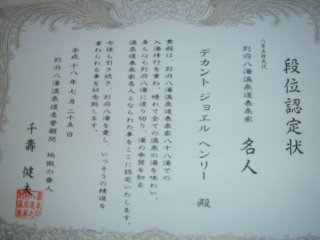 段位認定状
八百五拾弐代
別府八湯温泉道表泉家 名人
デカント ジョエル ヘンリー 殿
貴殿は、別府八湯温泉道表泉家八十八湯での
入湯修行を重ね、晴れて全ての温泉の湯を味わい、
身も心も別府八湯に浸り切り、湯の本質を知る
温泉道表泉家名人となられた事をここに認定いたします。
今後も引き続き、別府八湯を愛し、いっそうの精進を
重ねられる事を祈念致します。
平成十八年七月二十五日
別府八湯温泉道名誉顧問 地獄の番人
千壽 健夫